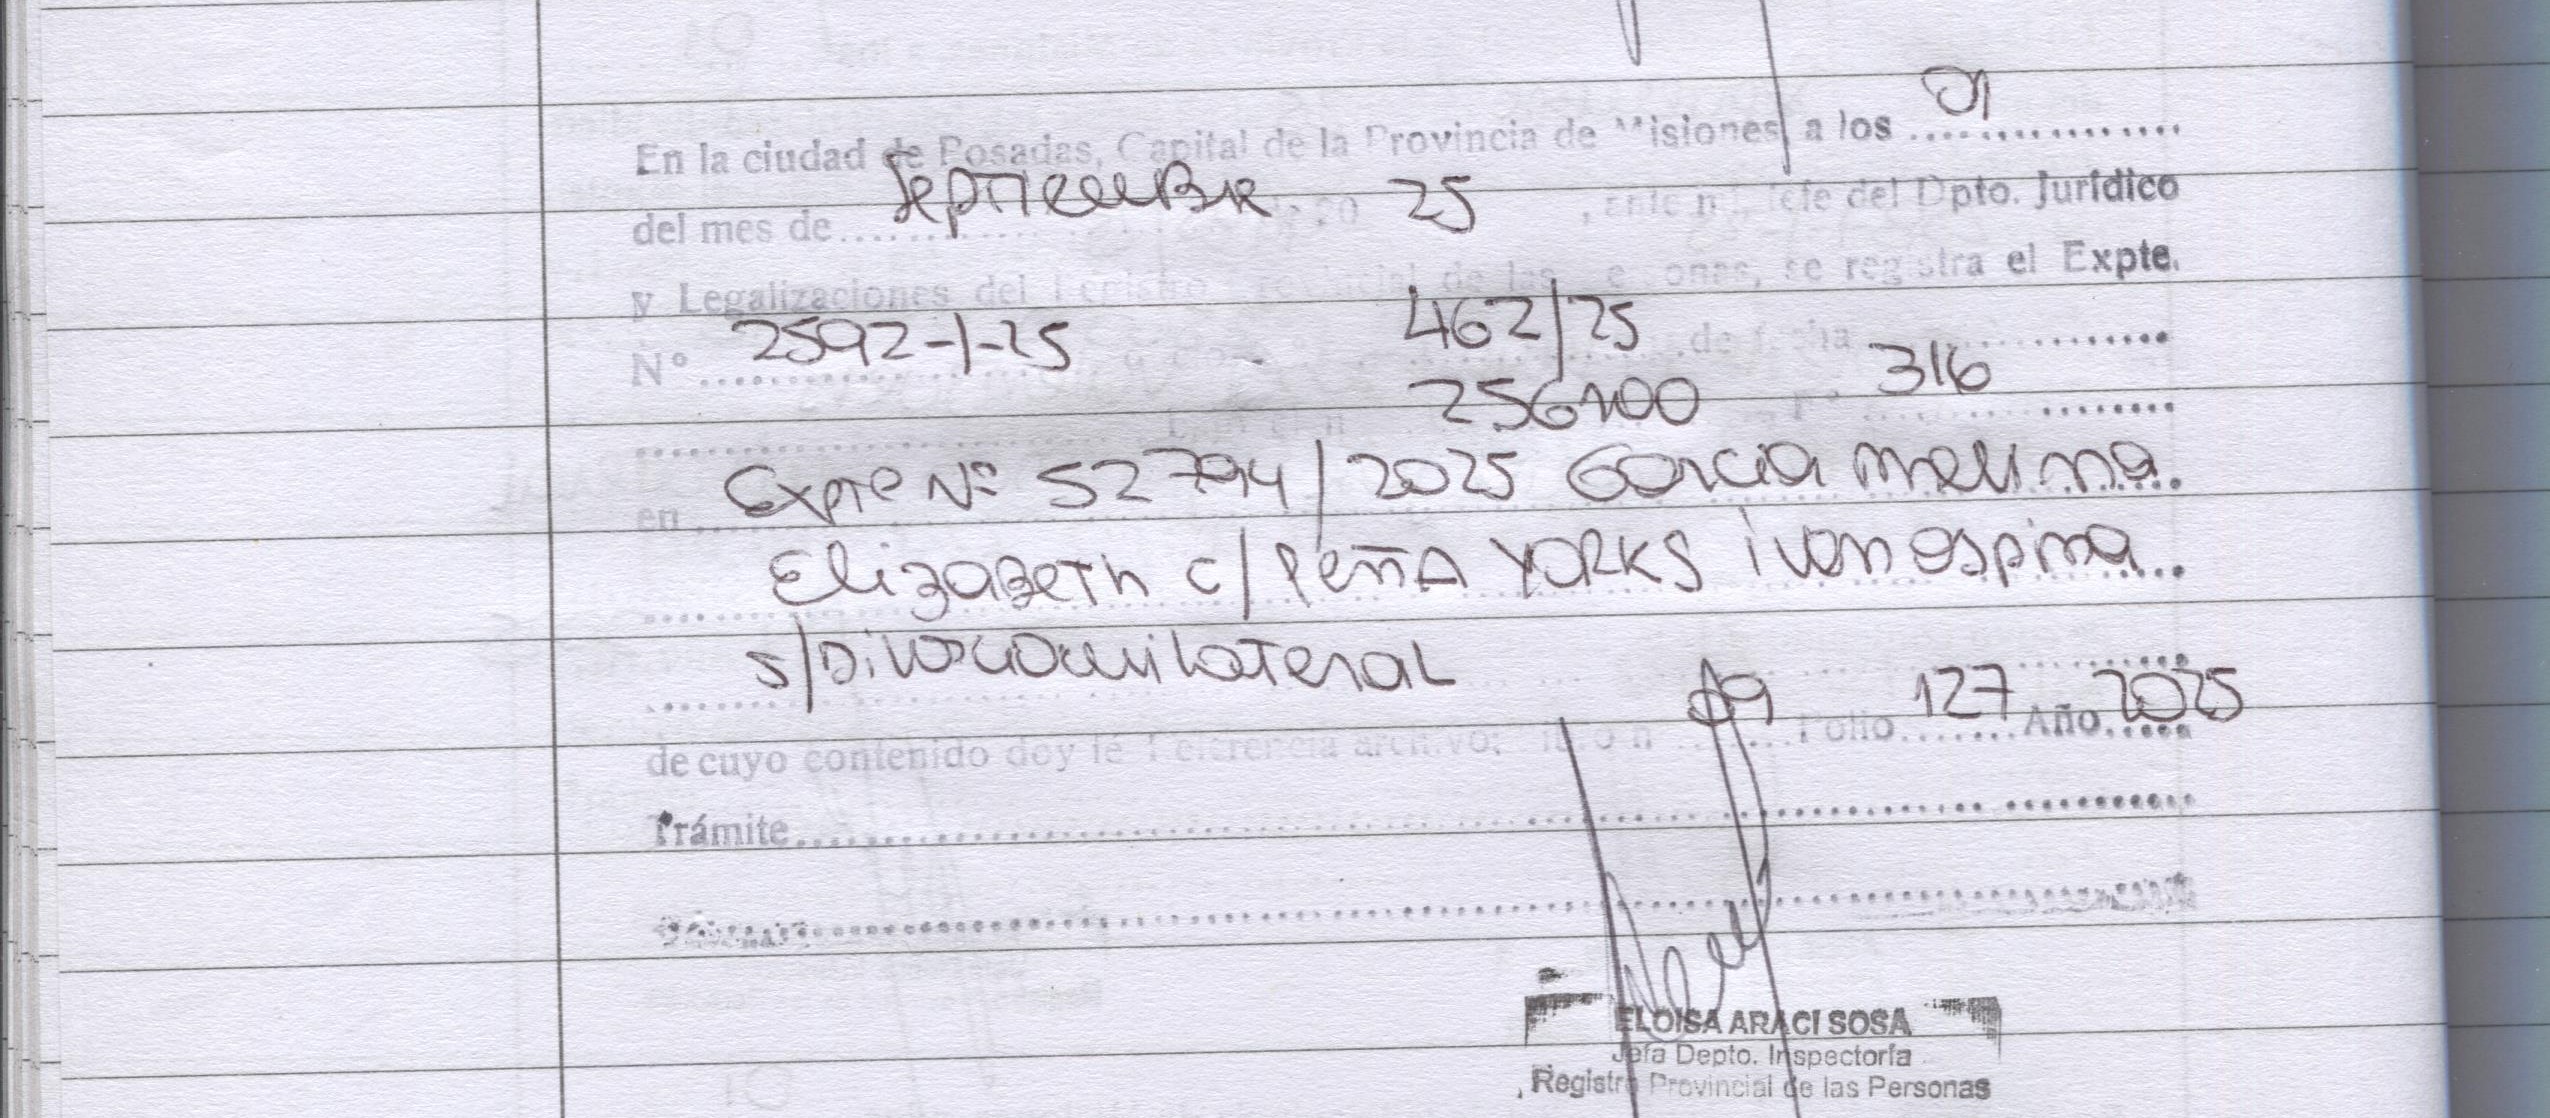 En la ciudad de Posadas, Capital de la Provincia de Misiones, a los 01
del mes de Septiembre de 20 25, ante mi, Jefe del Dpto. Jurídico
y Legalizaciones del Registro Provincial de las Personas, se registra el Expte.
N° 2592-1-25 462/25 de fecha
256100 N° 316
en Expte Nº 52794/2025 Garcia Melina
Elizabeth c/ Peña Yorks Ivan Ospina
s/Divorcio unilateral
de cuyo contenido doy fé Referencia archivo: Libro n 19 Folio 127 Año 2025
Trámite
ELOISA ARACI SOSA
Jefa Depto. Inspectoría
Registro Provincial de las Personas